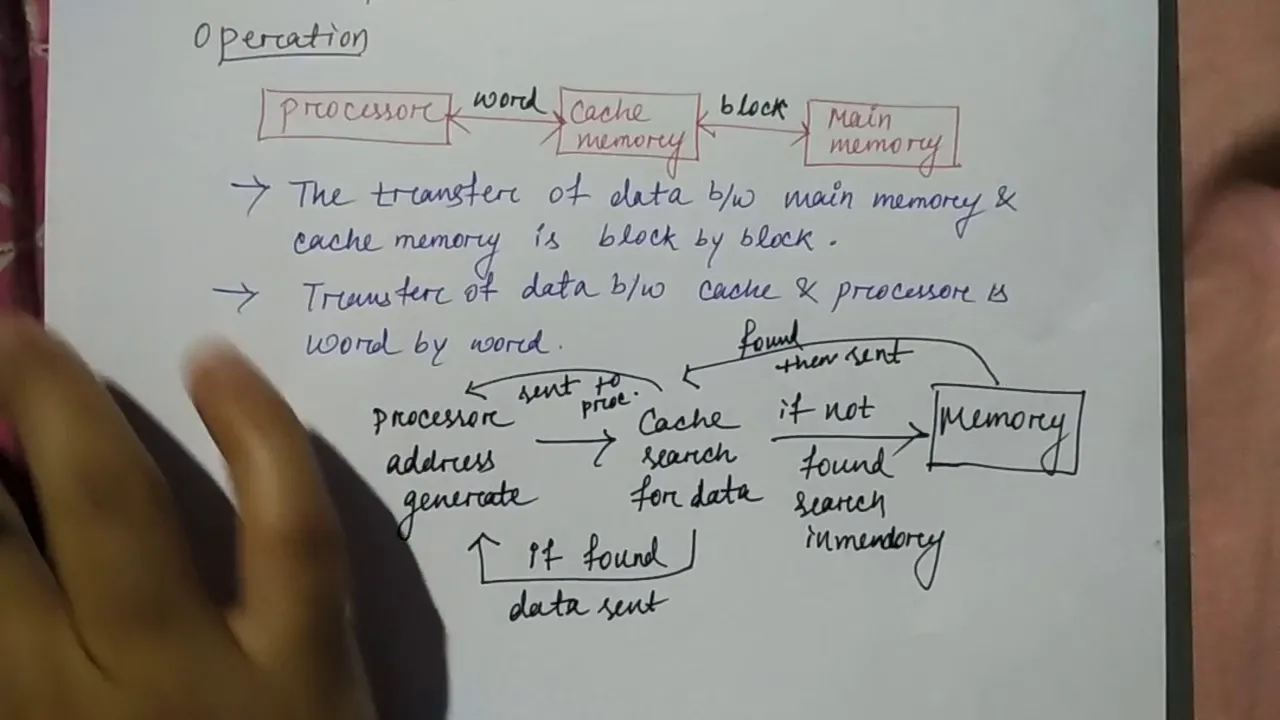 Operation
processor
word
cache
memory
block
Main
memory
→ The transfer of data b/w main memory &
cache memory is block by block.
→ Transfer of data b/w cache & processor is
word by word.
found
then sent
sent to
proc.
processor
address
generate
Cache
search
for data
if not
found
search
in memory
Memory
if found
data sent